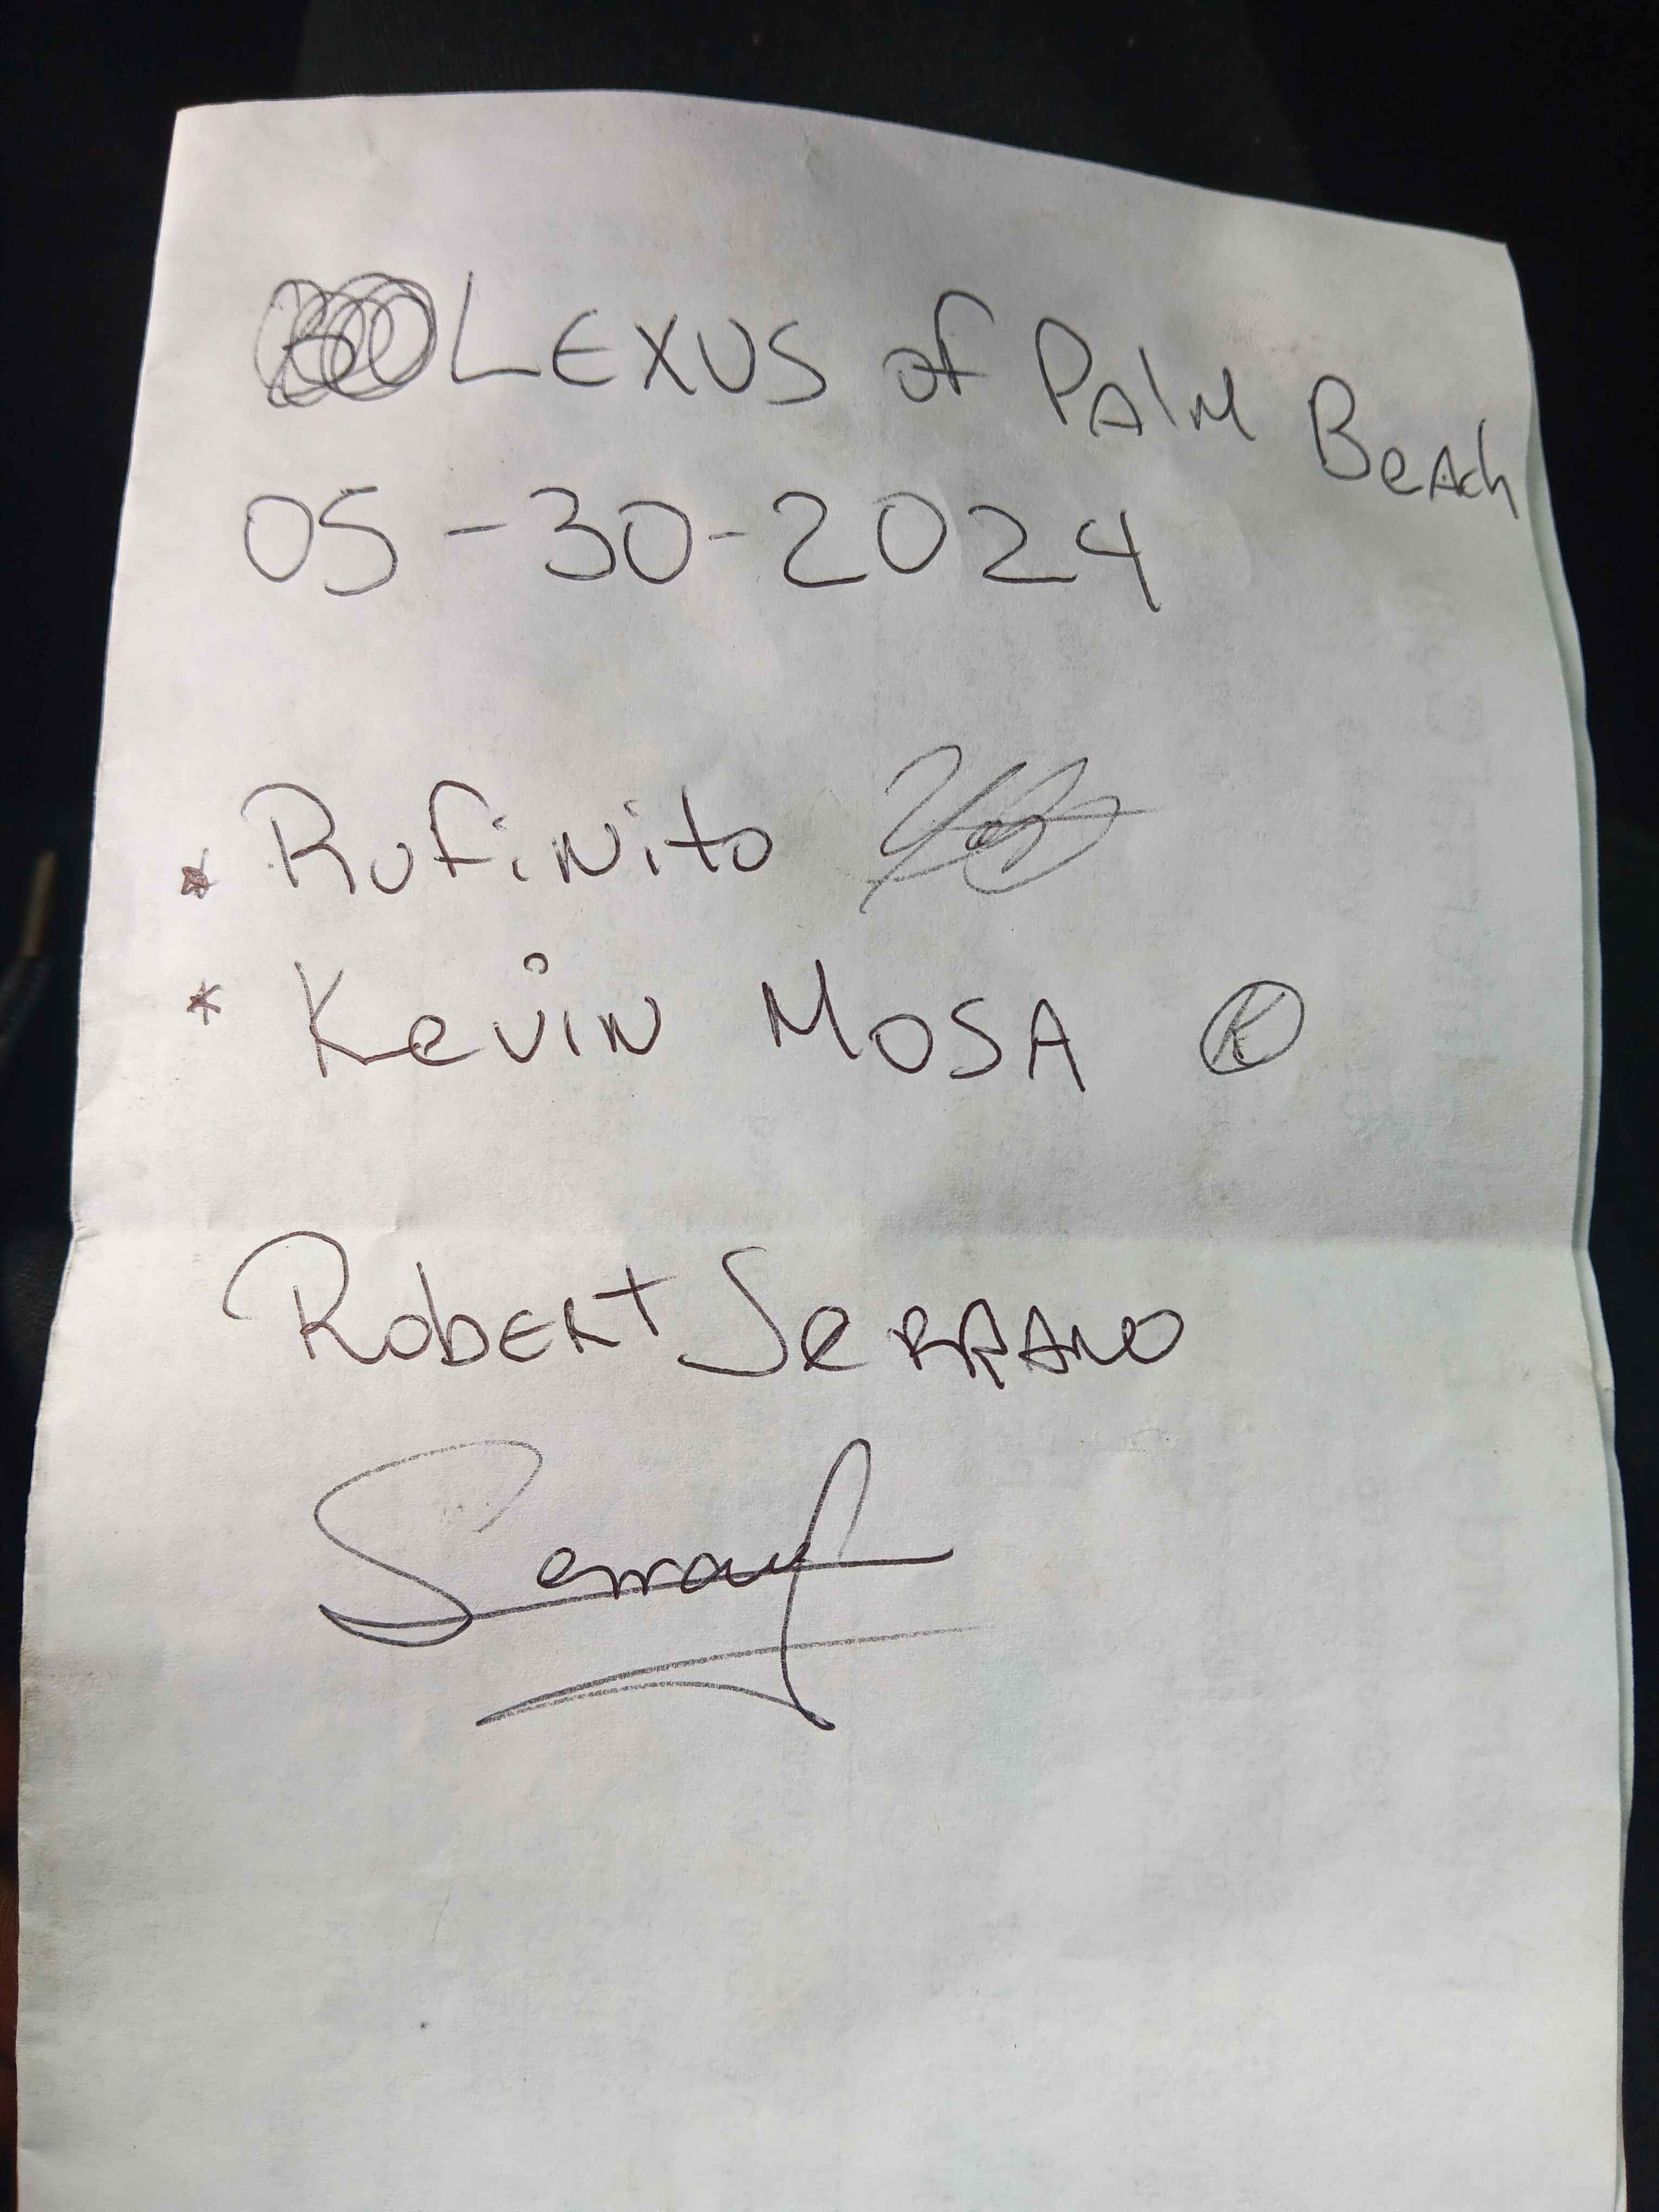 LEXUS of PAlM BeAch
05-30-2024
* RuFiNito
* KeviN MOSA K
RobERt SeRRANO